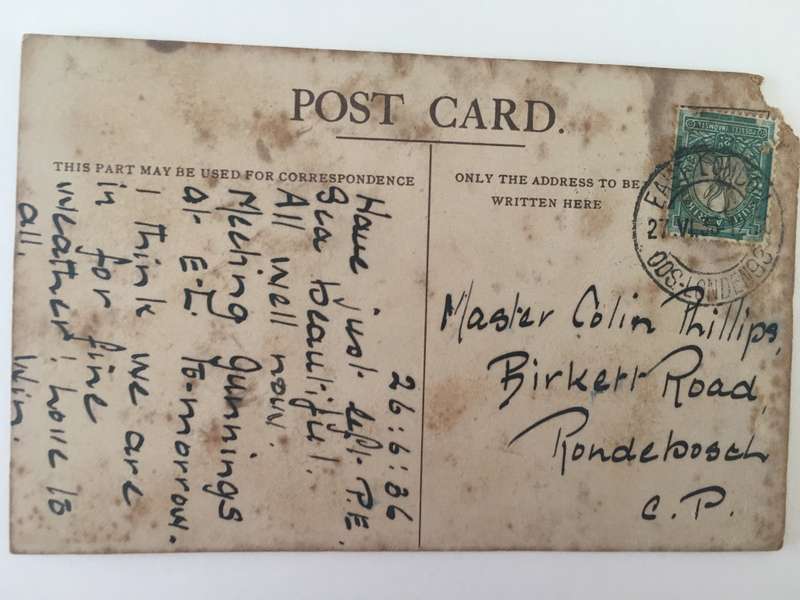 POST CARD.
THIS PART MAY BE USED FOR CORRESPONDENCE
ONLY THE ADDRESS TO BE
WRITTEN HERE
26:6:36
Have just left P.E.
Sea beautiful.
All well now.
Meeting Gunnings
at E-L. To-morrow.
I think we are
in for fine
weather! love to
all. Win.
EAST LONDON
27 VI
OOS-LONDEN
Master Colin Phillips,
Birkett Road,
Rondebosch
C.P.